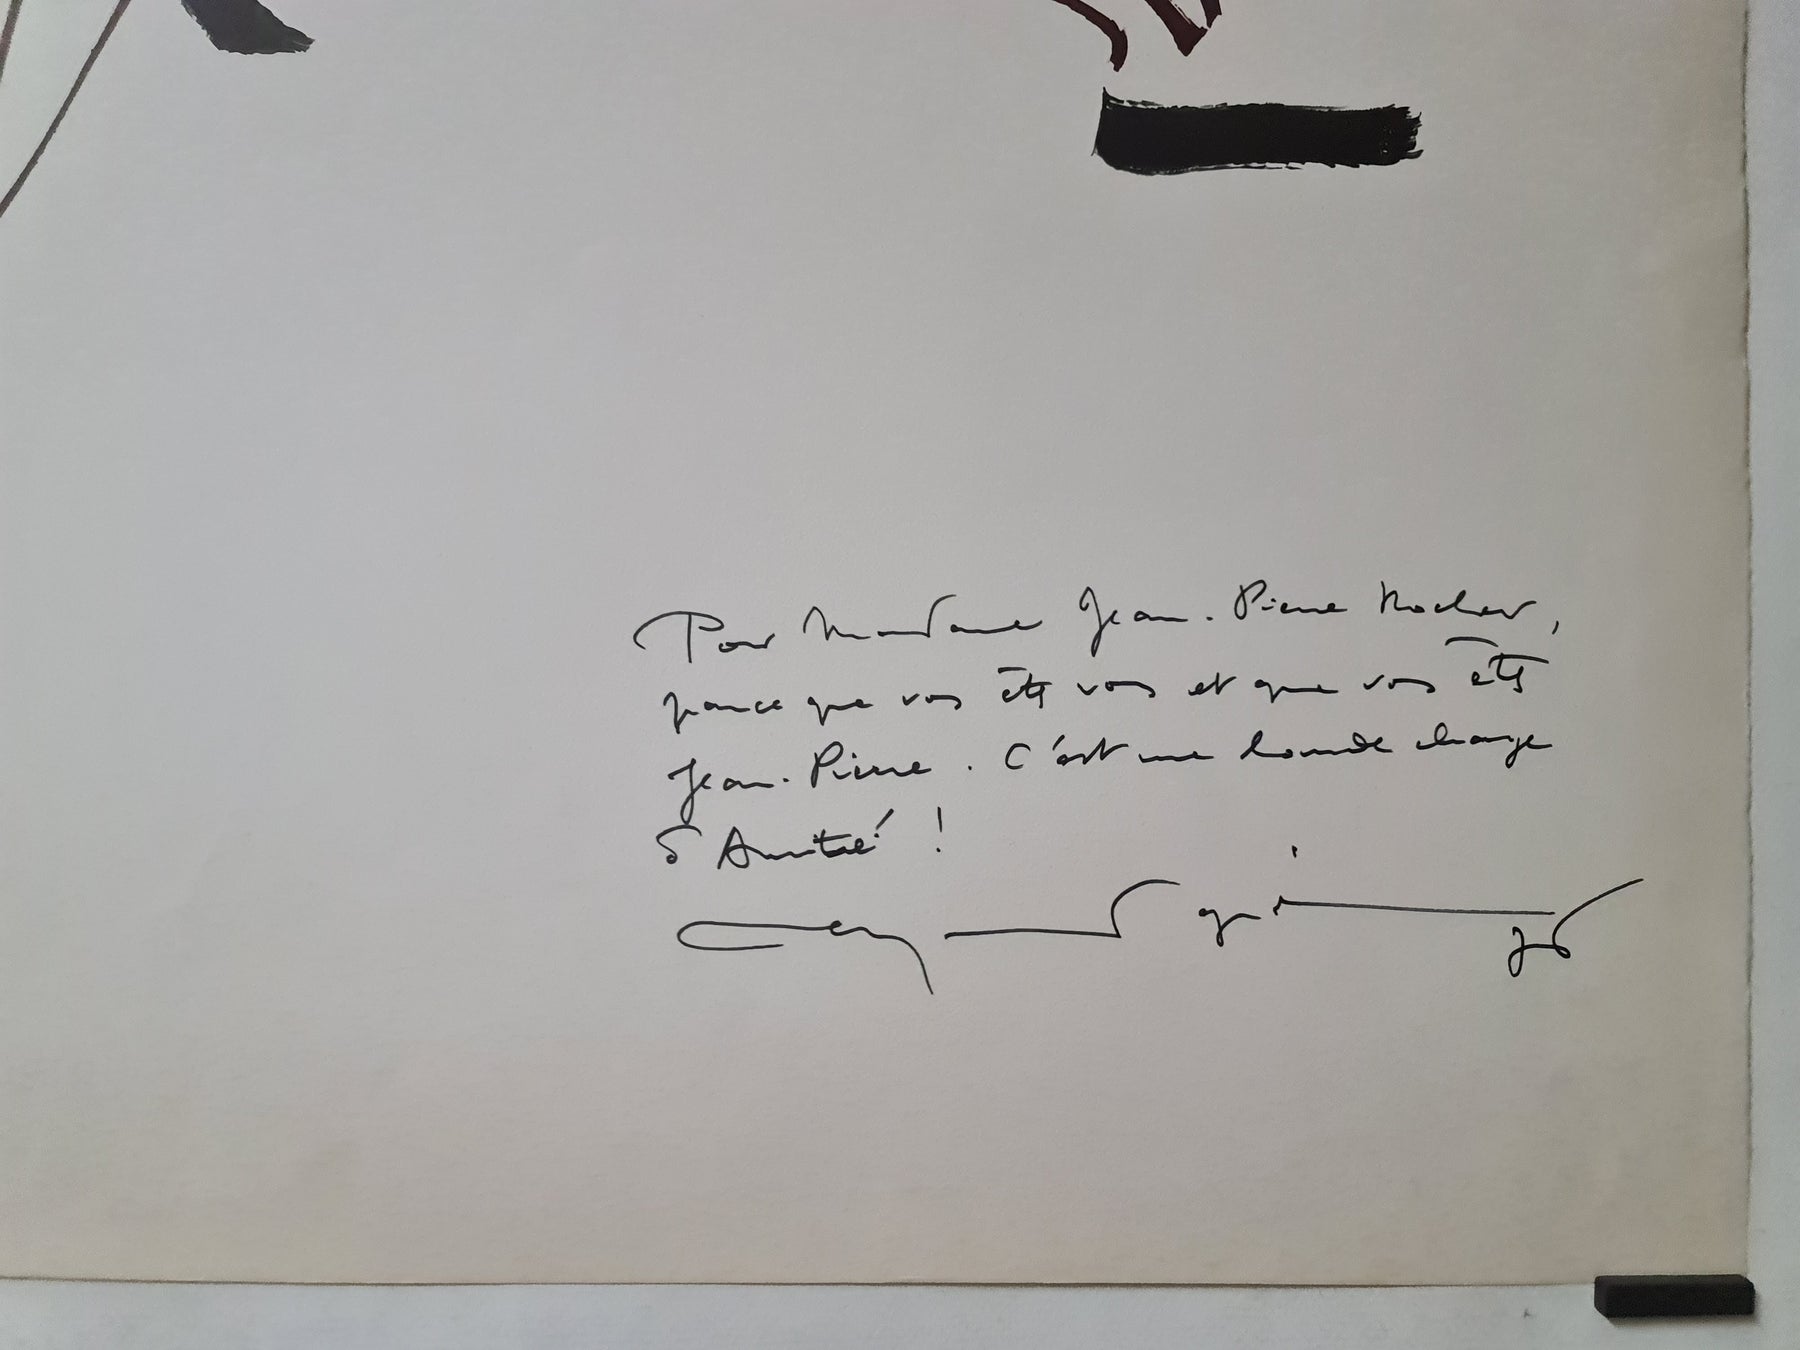 Pour Madame Jean-Pierre Rocher,
parce que vous êtes vous et que vous êtes
Jean-Pierre. C'est une lourde charge
d'Amitié !